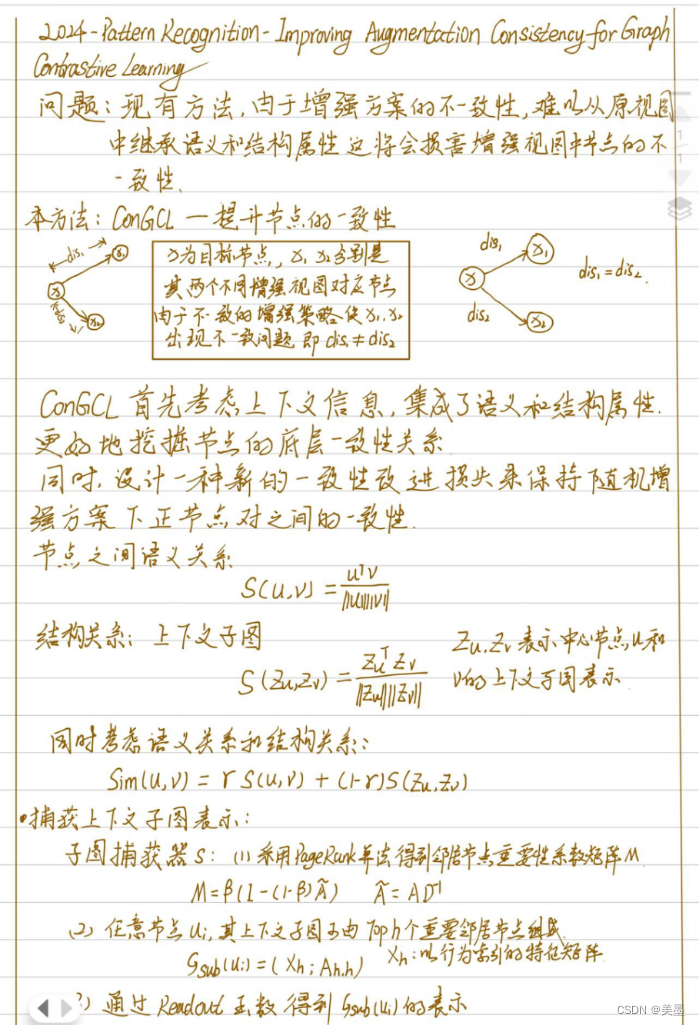 2024-Pattern Recognition-Improving Augmentation Consistency for Graph
Contrastive Learning
问题：现有方法，由于增强方案的不一致性，难以从原视图
中继承语义和结构属性 这将会损害增强视图中节点的不
一致性、
本方法：ConGCL — 提升节点的一致性
dis₁ x₁
x
dis₂ x₂
x为目标节点，x₁ x₂分别是
其两个不同增强视图对应节点
由于不一致的增强策略使x₁,x₂
出现不一致问题 即 dis₁≠dis₂
dis₁ x₁
x
dis₂ x₂
dis₁=dis₂.
ConGCL 首先考虑上下文信息，集成了语义和结构属性.
更好地挖掘节点的底层一致性关系.
同时，设计一种新的一致性改进损失来保持随机增
强方案下正节点对之间的一致性.
节点之间语义关系
S(u,v) = uᵀv / ||u||||v||
结构关系：上下文子图
S(Zu,Zv) = Zuᵀ Zv / ||Zu||||Zv||
Zu,Zv 表示中心节点,u和
v的上下文子图表示
同时考虑语义关系和结构关系：
Sim(u,v) = r S(u,v) + (1-r)S(Zu,Zv)
•捕获上下文子图表示：
子图捕获器S： (1) 采用PageRank算法得到邻居节点重要性系数矩阵M.
M=β(I-(1-β)Ã) Ã=AD⁻¹
(2) 任意节点Ui，其上下文子图可由Top h个重要邻居节点组成.
Gsub(Ui)=(Xh; Ah,h) Xh:以行为索引的特征矩阵
通过Readout函数得到Gsub(Ui)的表示
1
1
CSDN @美墨